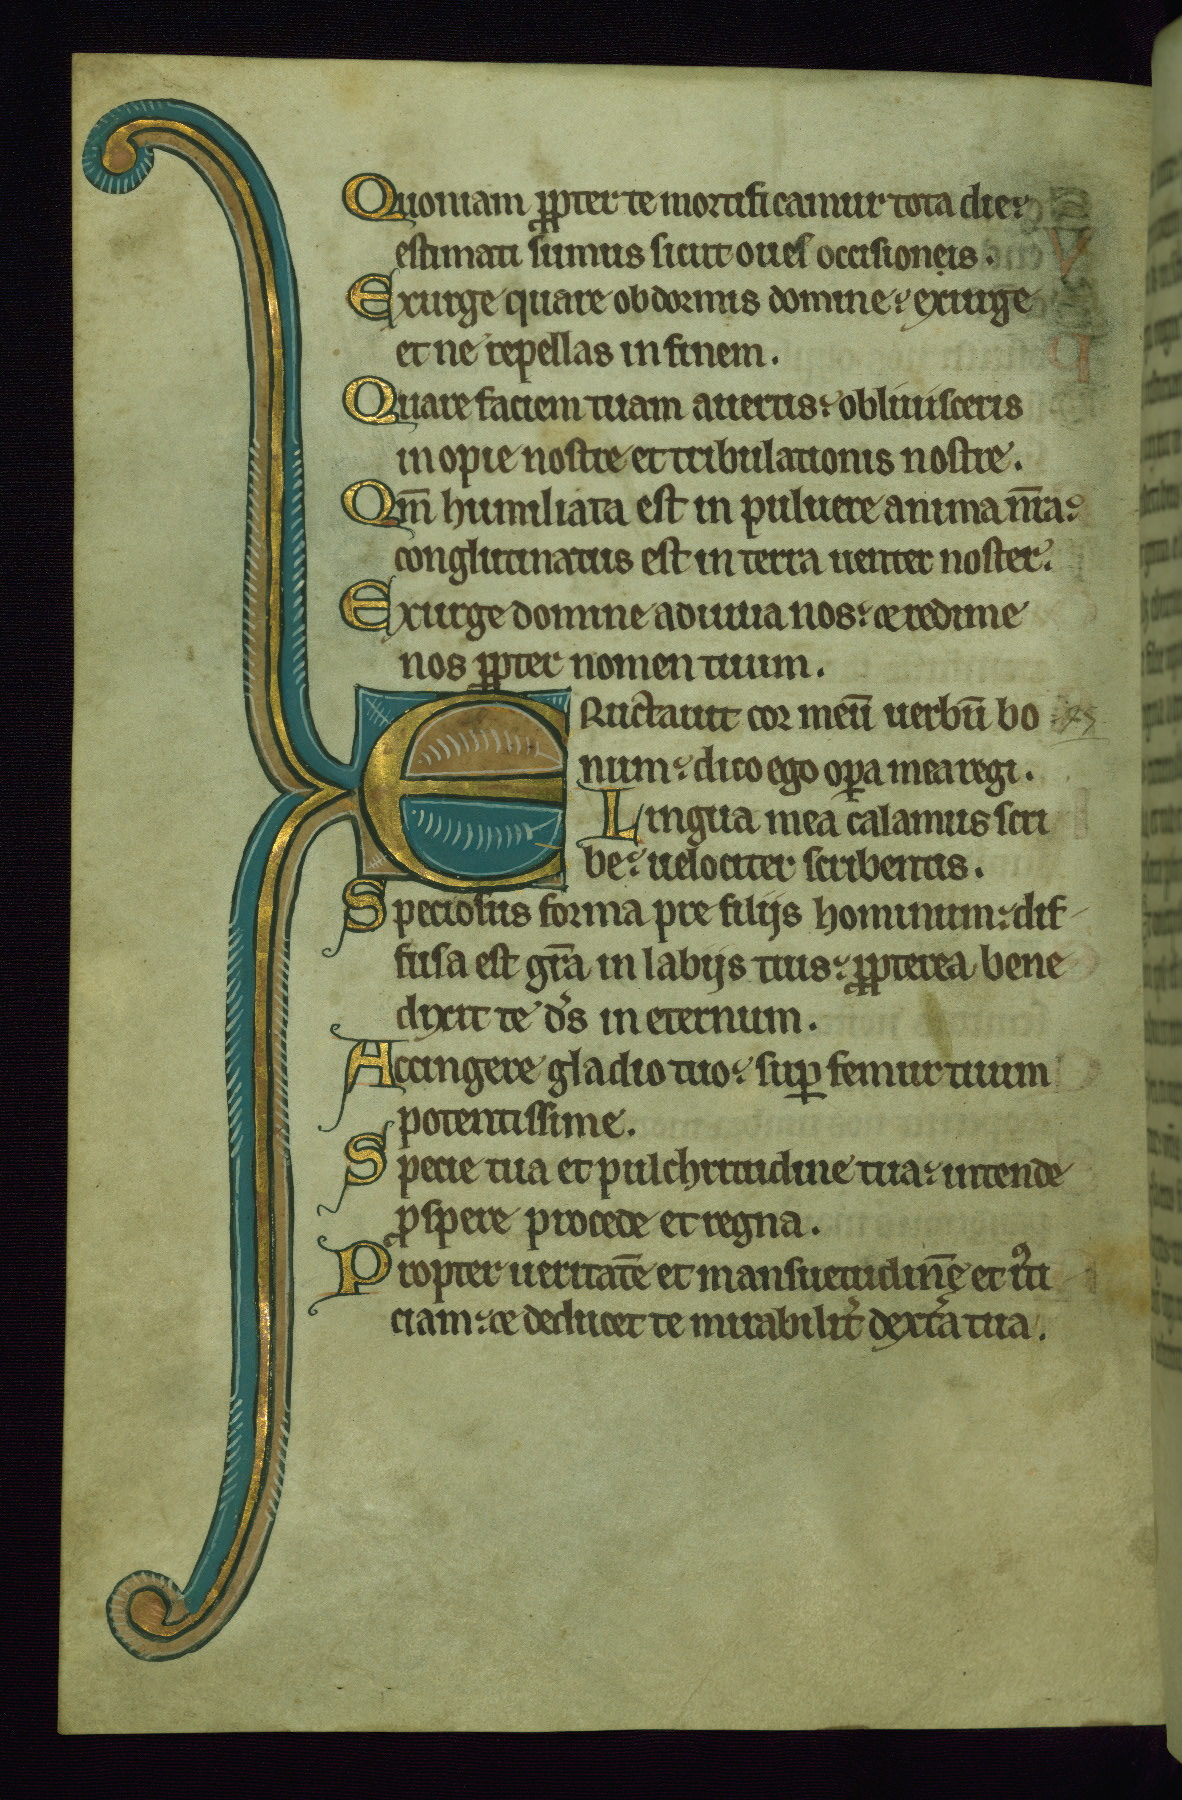 Quoniam ꝓpter te mortificamur tota die:
estimati sumus sicut oues occisioneis.
Exurge quare obdormis domine: exurge
et ne repellas in finem.
Quare faciem tuam auertis: obliuisceris
inopie nostre et tribulationis nostre.
Qm̅ humiliata est in puluere anima nr̅a:
conglutinatus est in terra uenter noster.
Exurge domine adiuua nos: et redime
nos ꝓpter nomen tuum.
Eructauit cor meu̅ uerbu̅ bo
num: dico ego oꝑa mea regi.
Lingua mea calamus scri
be: uelociter scribentis.
Speciosus forma pre filijs hominum: dif
fusa est gr̅a in labijs tuis: ꝓpterea bene
dixit te ds̅ in eternum.
Accingere gladio tuo: suꝑ femur tuum
potentissime.
Specie tua et pulchritudine tua: intende
ꝓspere procede et regna.
Propter ueritate̅ et mansuetudine̅ et iusti
ciam: et deducet te mirabilit̅ dext̅a tua.